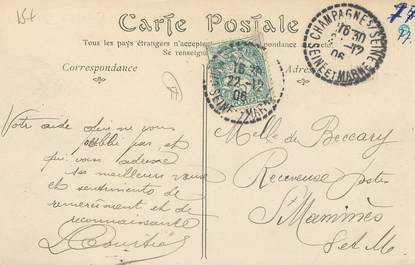 154
Carte Postale
Tous les pays étrangers n'acceptent
Se renseigner
Correspondance
Adresse
CHAMPAGNE S/ SEINE
16 30
12
06
SEINE ET MARNE
16 30
22-12
06
SEINE ET MARNE
Votre aide qui ne vous
oublie pas, et
qui vous adresse
ses meilleurs vœux
et sentiments de
remerciement et de
reconnaissance
Melle de Beccary
Receveuse postes
St Mammès
S et M.